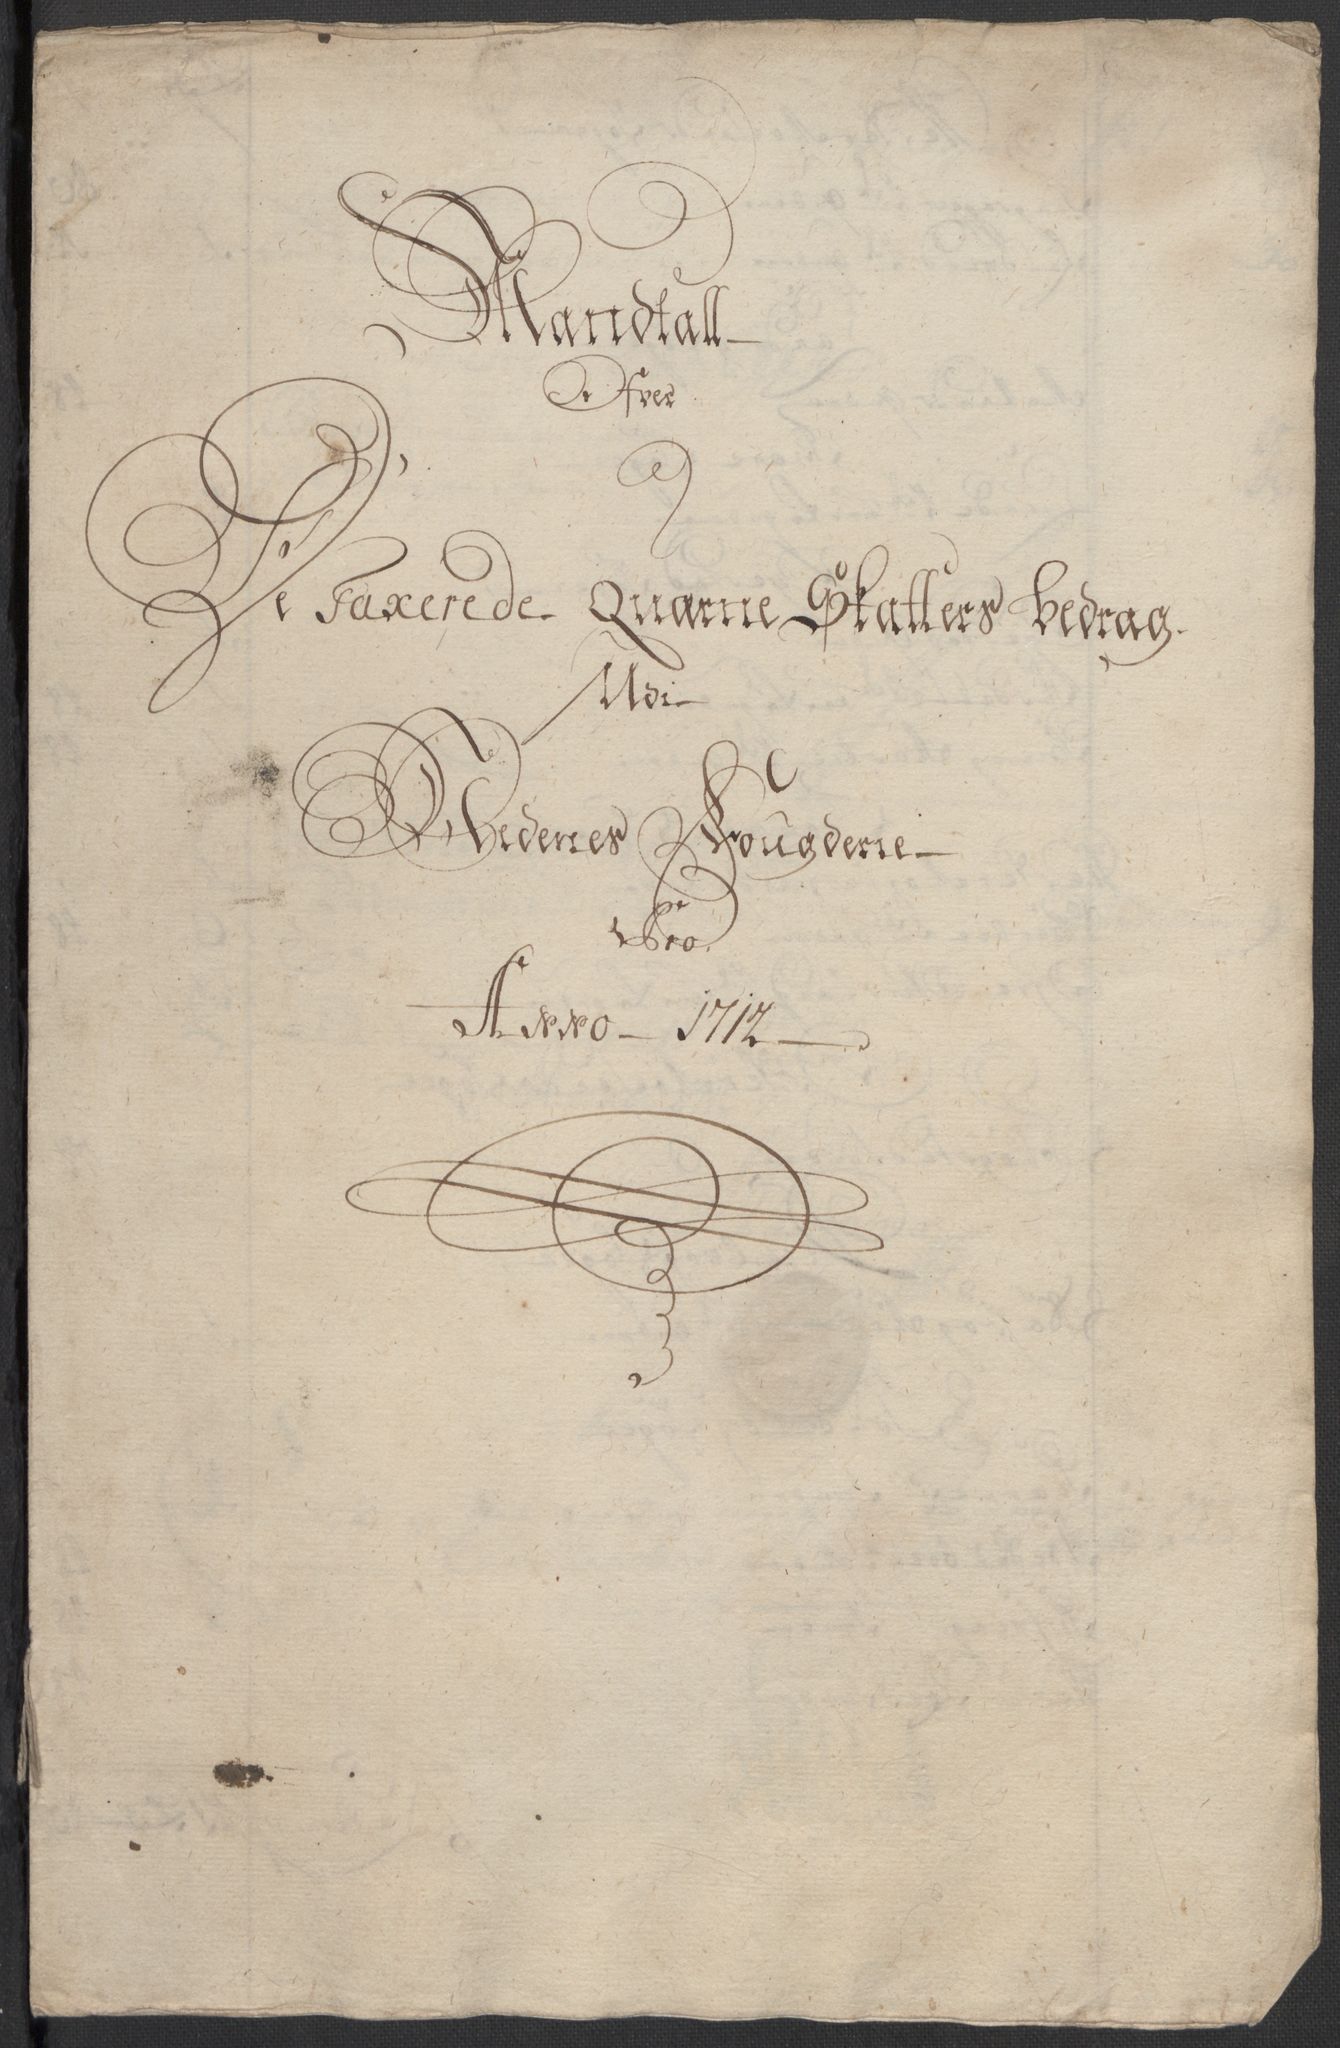 Mandtall
Ofver
De Taxerede Quarne Skatters bedrag
Udi
Nedenes Fougderie
Pro
Anno 1712